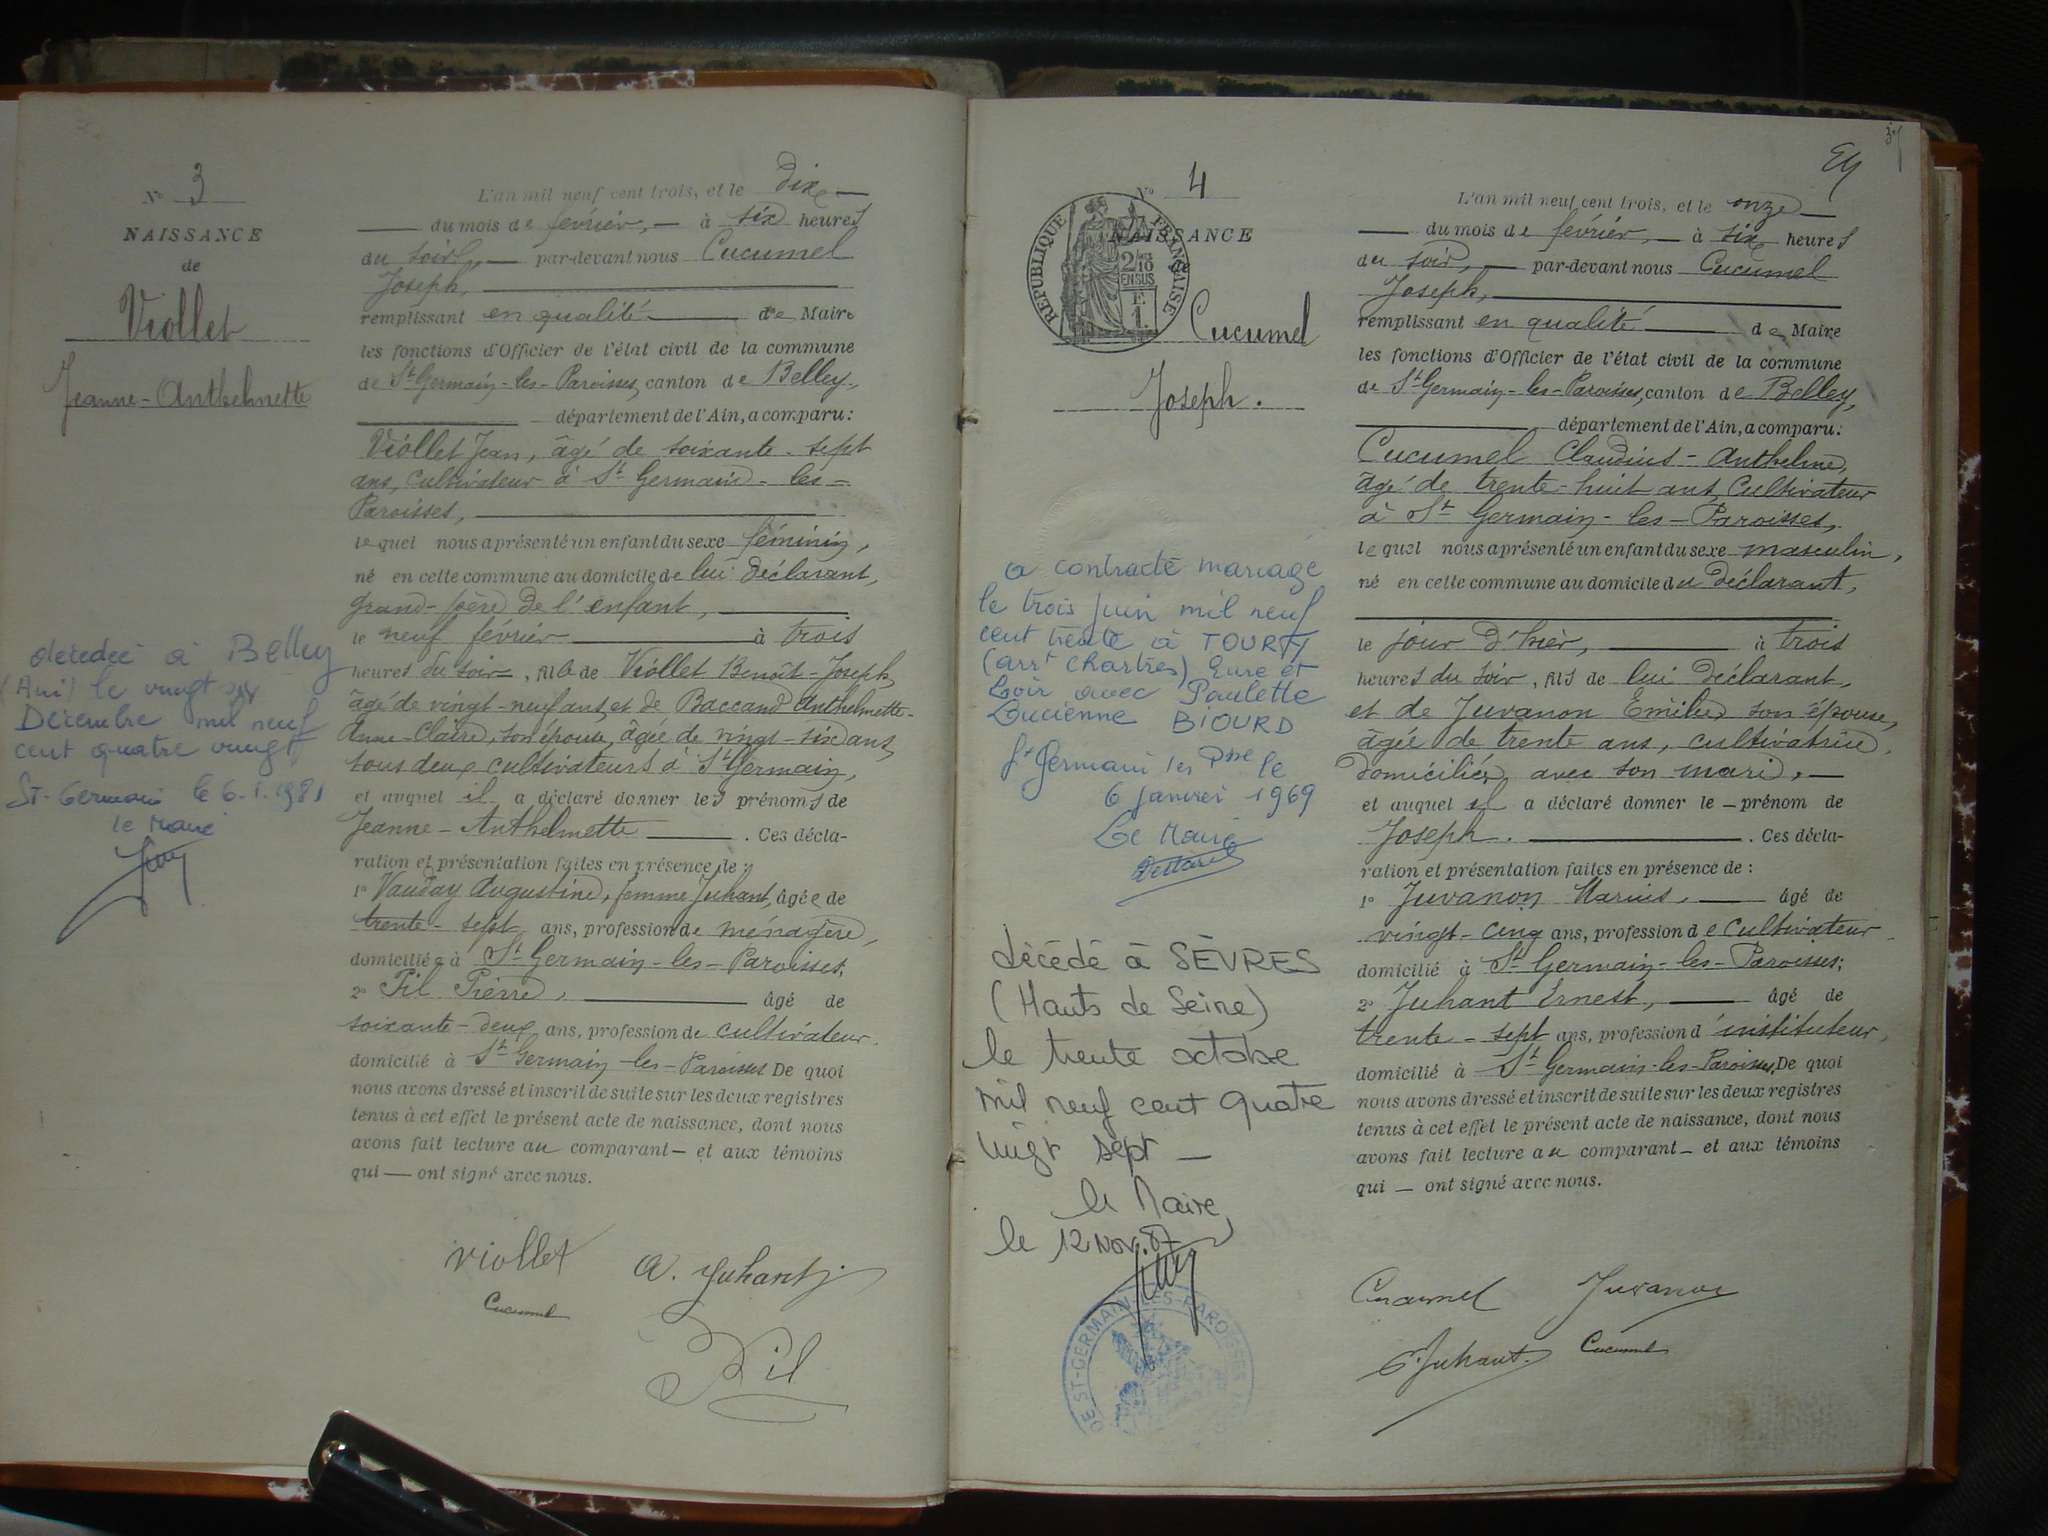 N° 3
NAISSANCE
de
Viollet
Jeanne-Anthelmette
décédée à Belley
(Ain) le vingt six
Décembre mil neuf
cent quatre vingt
St-Germain le 6.1.1981
le Maire
L'an mil neuf cent trois, et le dix
du mois de février, à six heures
du soir, par-devant nous Cucumel
Joseph,
remplissant en qualité de Maire
les fonctions d'Officier de l'état civil de la commune
de St Germain-les-Paroisses, canton de Belley,
département de l'Ain, a comparu:
Viollet Jean, âgé de soixante-sept
ans, cultivateur à St Germain-les-
Paroisses,
lequel nous a présenté un enfant du sexe féminin,
né en cette commune au domicile de lui déclarant,
grand-père de l'enfant,
le neuf février à trois
heures du soir, fille de Viollet Benoît-Joseph,
âgé de vingt-neuf ans, et de Baccand Anthelmette-
Anne-Claire, son épouse, âgée de vingt-six ans,
tous deux cultivateurs à St Germain,
et auquel il a déclaré donner les prénoms de
Jeanne-Anthelmette. Ces décla-
ration et présentation faites en présence de:
1° Vauday Augustine, femme Juhant, âgée de
trente-sept ans, profession de ménagère,
domiciliée à St Germain-les-Paroisses;
2° Pil Pierre, âgé de
soixante-deux ans, profession de cultivateur
domicilié à St Germain-les-Paroisses De quoi
nous avons dressé et inscrit de suite sur les deux registres
tenus à cet effet le présent acte de naissance, dont nous
avons fait lecture au comparant - et aux témoins
qui - ont signé avec nous.
Viollet A. Juhant
Cucumel
Pil
N° 4
NAISSANCE
de
RÉPUBLIQUE FRANÇAISE
2/10
EN SUS
F.
1.
Cucumel
Joseph.
a contracté mariage
le trois juin mil neuf
cent trente à TOURY
(arrt Chartres) Eure et
Loir avec Paulette
Lucienne BIOURD
St Germain les Psses le
6 janvier 1969
Le Maire
décédé à SÈVRES
(Hauts de Seine)
le trente octobre
mil neuf cent quatre
vingt sept -
le Maire,
le 12 Nov. 87
DE ST-GERMAIN-LES-PAROISSES
L'an mil neuf cent trois, et le onze
du mois de février, à six heures
du soir, par-devant nous Cucumel
Joseph,
remplissant en qualité de Maire
les fonctions d'Officier de l'état civil de la commune
de St Germain-les-Paroisses, canton de Belley,
département de l'Ain, a comparu:
Cucumel Claudius-Anthelme,
âgé de trente-huit ans, Cultivateur
à St Germain-les-Paroisses,
lequel nous a présenté un enfant du sexe masculin,
né en cette commune au domicile du déclarant,
le jour d'hier, à trois
heures du soir, fils de lui déclarant,
et de Juvanon Emilie, son épouse,
âgée de trente ans, cultivatrice,
domiciliée avec son mari,
et auquel il a déclaré donner le - prénom de
Joseph. Ces décla-
ration et présentation faites en présence de:
1° Juvanon Marius, âgé de
vingt-cinq ans, profession de cultivateur
domicilié à St Germain-les-Paroisses;
2° Juhant Ernest, âgé de
trente-sept ans, profession d'instituteur,
domicilié à St Germain-les-Paroisses, De quoi
nous avons dressé et inscrit de suite sur les deux registres
tenus à cet effet le présent acte de naissance, dont nous
avons fait lecture au comparant - et aux témoins
qui - ont signé avec nous.
Cucumel Juvanon
E. Juhant. Cucumel